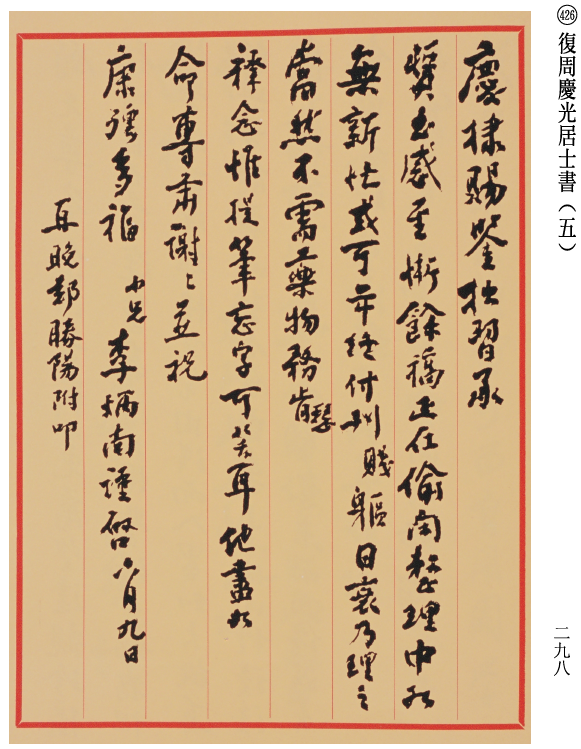 426
復周慶光居士書（五）
慶棣賜鑒拙習承
獎至感至慚餘稿正在偷閑整理中如
無新忙或可年終付刊賤軀日衰乃理之
當然不需藥物務肯
釋念惟提筆忘字可笑耳他盡如
命專肅謝謝並祝
康強多福
小兄李炳南謹啓六月九日
耳晚鄭勝陽附叩
二九八